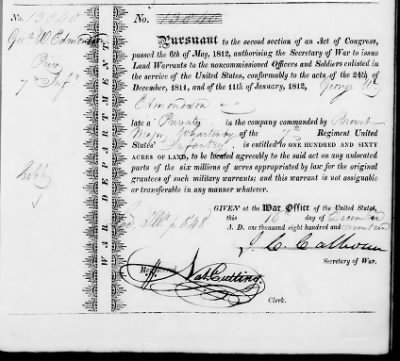 No. 13040
Geo. W Edmondson
Priv
7th Inf.
WAR DEPARTMENT.
No. 13040
Pursuant to the second section of an Act of Congress,
passed the 6th of May, 1812, authorising the Secretary of War to issue
Land Warrants to the noncommissioned Officers and Soldiers enlisted
in the service of the United States, conformably to the acts of the 24th of
December, 1811, and of the 11th of January, 1812, George W.
Edmondson
late a Private in the company commanded by Brevet
Major of the 7th Regiment United
States' Infantry is entitled to ONE HUNDRED AND SIXTY
ACRES OF LAND, to be located agreeably to the said act on any unlocated
parts of the six millions of acres appropriated by law for the original
grantees of such military warrants; and this warrant is not assignable
or transferable in any manner whatever.
GIVEN at the War Office of the United States,
this day of December
A. D. one thousand eight hundred and
J. C. Calhoun
Secretary of War.
Nat. Cutting
Clerk.